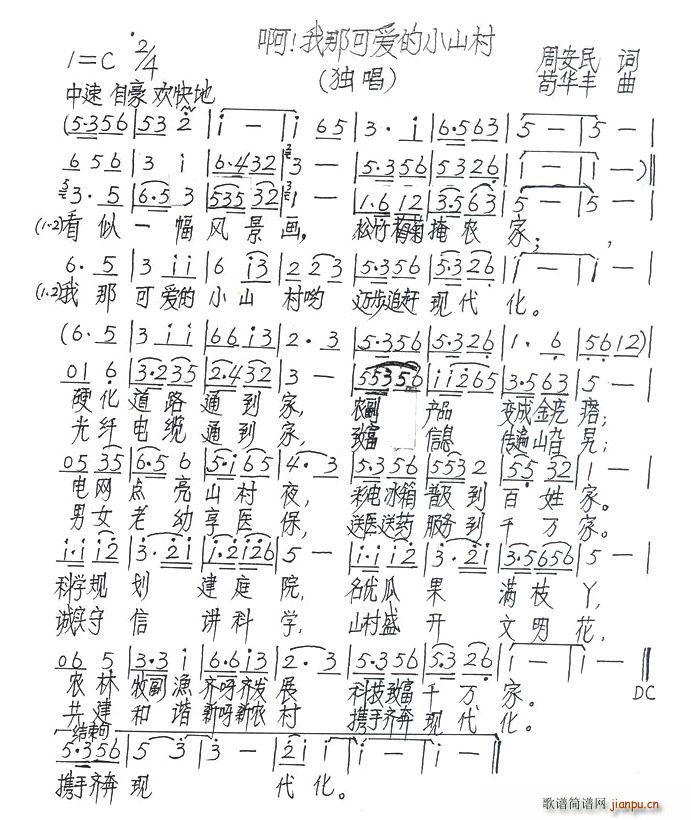 啊!我那可爱的小山村
1=C 2/4 (独唱) 周安民 词
中速 自豪 欢快地 苟华丰 曲
(5·356 | 53 2 | i — | i 65 | 3 · i | 6·563 | 5 — | 5 — |
656 | 3 i | 6·432 | 3 — | 5·356 | 5326 | i — | i — )‖
3 · 5 | 6·5 3 | 535 32 | 1 — | 1·6 12 | 3·563 | 5 — | 5 — |
(1·2)看似一幅风景画, 松竹葡萄掩农家;
6 · 5 | 3 i i | 6 i3 | 2 23 | 5·356 | 5326 | i — | i — |
(1·2)我那可爱的小山村哟 迈步追赶现代化。
(6 · 5 | 3 i i | 66i3 | 2 · 3 | 5·356 | 5·326 | 1 · 6 | 5612 )|
01 6 | 3·235 | 2·432 | 3 — | 55356 | i i265 | 3·563 | 5 — |
硬化道路通到家, 农副产品变成金疙瘩;
光纤电缆通到家, 致富信息传遍山旮旯;
05 35 | 6·5 6 | 5·i65 | 4 · 3 | 5·356 | 5532 | 55 32 | 1 — |
电网点亮山村夜, 彩电冰箱普及到百姓家。
男女老幼享医保, 送医送药服务到千万家。
i·i i2 | 3·2i | i·2i26 | 5 — | i·i i2 | 3·2i | 3·5656 | 5 — |
科学规划建庭院, 名优瓜果满枝丫,
诚实守信讲科学, 山村盛开文明花,
06 5 | 3·3 i | 6·6i3 | 2 · 3 | 5·356 | 5·326 | i — | i — ‖
农林牧副渔齐呼齐发展 科技致富千万家。 DC
共建和谐新呼新农村 携手齐奔现代化。
结束句
5·356 | 5 3 | 3 — | 2i i | i — | i — ‖
携手齐奔现代化。
歌谱简谱网 jianpu.cn